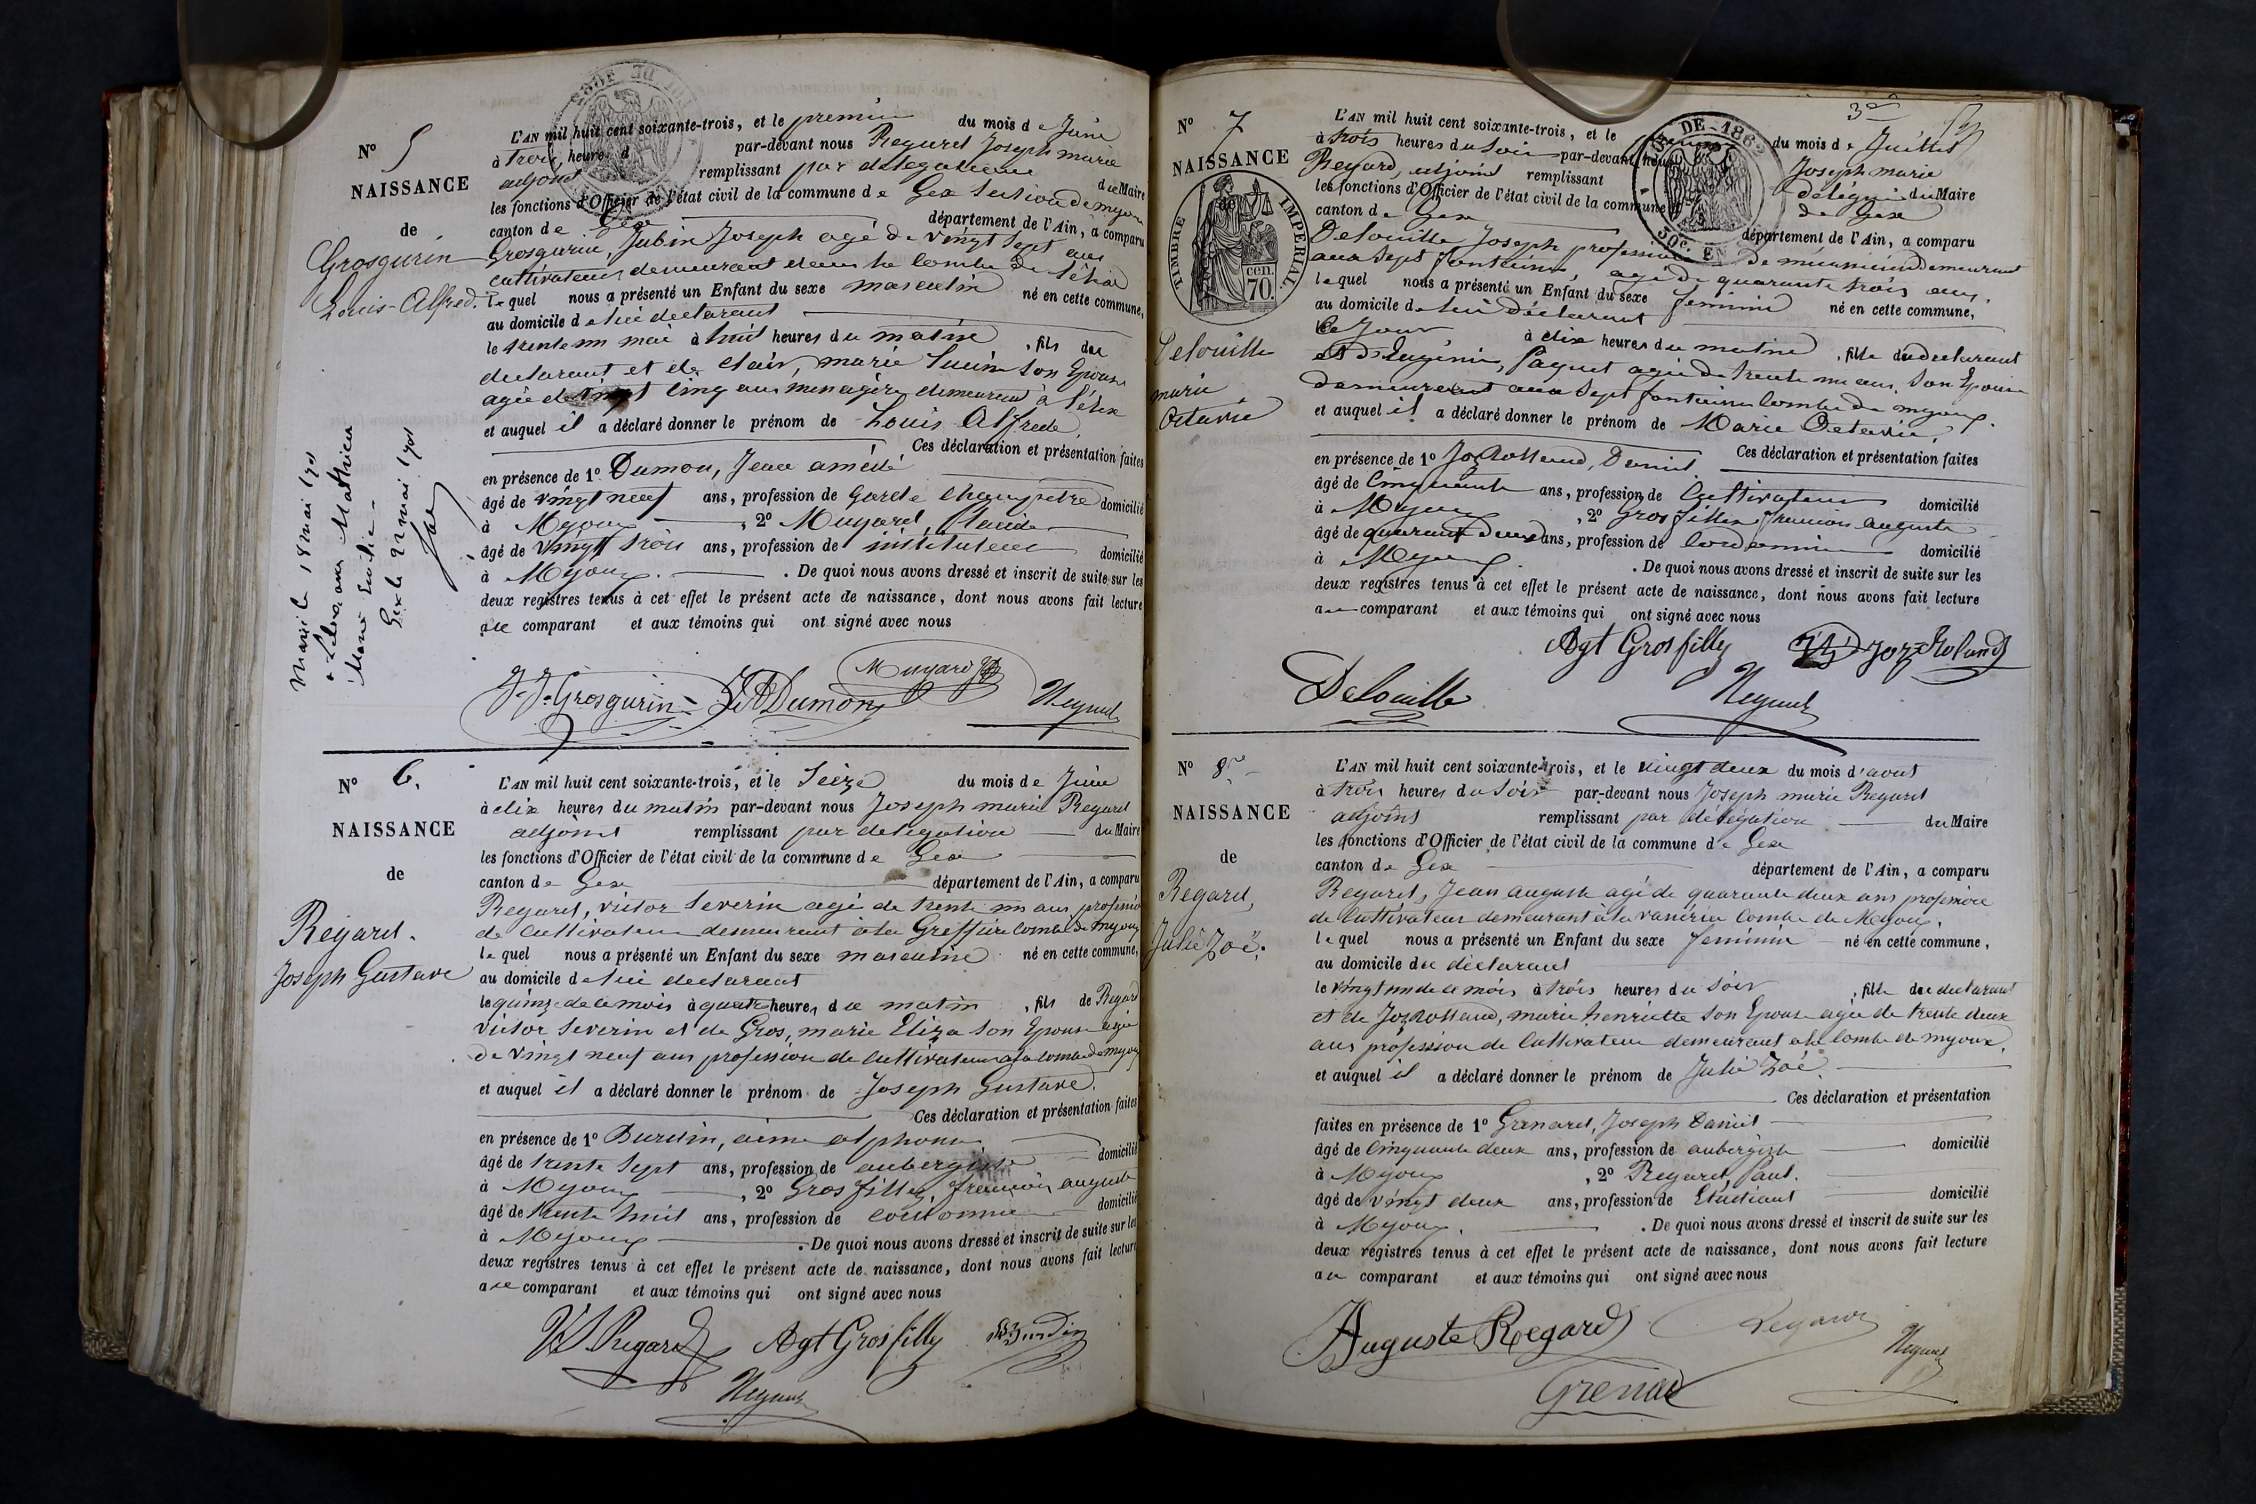 N° 5
NAISSANCE
de
Grosgurin
Louis-Alfred.
Marié le 18 mai 1901
Gex le 22 mai 1901
L'AN mil huit cent soixante-trois, et le premier du mois de Juin
à trois heures d par-devant nous Regard Joseph marie
adjoint remplissant par délégation du Maire
les fonctions d'Officier de l'état civil de la commune de Gex Section de myoux
canton de Gex département de l'Ain, a comparu
Grosgurin, Jubin Joseph agé de vingt sept ans
cultivateur demeurant dans la combe de
lequel nous a présenté un Enfant du sexe masculin né en cette commune,
au domicile de lui déclarant
le trente un mai à huit heures du matin, fils du
déclarant et de Clair, marie Lucine son Epouse
agée de vingt cinq ans menagère demeurant à
et auquel il a déclaré donner le prénom de Louis Alfrede
Ces déclaration et présentation faites
en présence de 1° Dumon, Jean amédé
âgé de vingt neuf ans, profession de Garde champetre domicilié
à Myoux, 2° Mugard, Claude
âgé de vingt trois ans, profession de instituteur domicilié
à Myoux. De quoi nous avons dressé et inscrit de suite sur les
deux registres tenus à cet effet le présent acte de naissance, dont nous avons fait lecture
au comparant et aux témoins qui ont signé avec nous
J. J. Grosgurin JA Dumon Mugard Regard
N° 6.
NAISSANCE
de
Regard.
Joseph Gustave
L'AN mil huit cent soixante-trois, et le Seize du mois de Juin
à dix heures du matin par-devant nous Joseph marie Regard
adjoint remplissant par délégation du Maire
les fonctions d'Officier de l'état civil de la commune de Gex
canton de Gex département de l'Ain, a comparu
Regard, victor Severin agé de trente un ans profession
de Cultivateur demeurant à la Greffière Combe de myoux
lequel nous a présenté un Enfant du sexe masculin né en cette commune,
au domicile de lui declarant
le quinze de ce mois à quatre heures du matin, fils de Regard
victor Severin et de Gros, marie Eliza son Epouse agée
de vingt neuf ans profession de Cultivateur à la Combe de myoux
et auquel il a déclaré donner le prénom de Joseph Gustave.
Ces déclaration et présentation faites
en présence de 1° Burdin, aimé alphonse
âgé de trente Sept ans, profession de aubergiste domicilié
à Myoux, 2° Gros filley, francois auguste
âgé de trente huit ans, profession de cordonnier domicilié
à Myoux. De quoi nous avons dressé et inscrit de suite sur les
deux registres tenus à cet effet le présent acte de naissance, dont nous avons fait lecture
au comparant et aux témoins qui ont signé avec nous
V S. Regard Agt Grosfilly Burdin
Regard
N° 7
NAISSANCE
de
TIMBRE IMPERIAL.
cen.
70.
Delouille
marie
Octavie
3e
DE-1862
50c. EN
L'AN mil huit cent soixante-trois, et le du mois de Juillet
à trois heures du Soir par-devant nous Joseph marie
Regard, adjoint remplissant délégué du Maire
les fonctions d'Officier de l'état civil de la commune de Gex
canton de Gex département de l'Ain, a comparu
Delouille Joseph profession de mécanicien demeurant
aux Sept fontaines, agé de quarante trois ans.
lequel nous a présenté un Enfant du sexe feminin né en cette commune,
au domicile de lui déclarant
Ce Jour à dix heures du matin, fille du declarant
et d'Eugénie, Paquet agée de trente un ans, Son Epouse
demeurant aux Sept fontaines Combe de myoux.
et auquel il a déclaré donner le prénom de Marie Octavie,
Ces déclaration et présentation faites
en présence de 1° Joz Rolland, Daniel
âgé de Cinquante ans, profession de Cultivateur domicilié
à Myoux, 2° Gros filley, francois auguste
âgé de quarante deux ans, profession de Cordonnier domicilié
à Myoux. De quoi nous avons dressé et inscrit de suite sur les
deux registres tenus à cet effet le présent acte de naissance, dont nous avons fait lecture
au comparant et aux témoins qui ont signé avec nous
Agt Grosfilly Joz-Roland
Delouille Regard
N° 8
NAISSANCE
de
Regard,
Julie Zoé.
L'AN mil huit cent soixante-trois, et le vingt deux du mois d'aout
à trois heures du Soir par-devant nous Joseph marie Regard
adjoint remplissant par délégation du Maire
les fonctions d'Officier de l'état civil de la commune de Gex
canton de Gex département de l'Ain, a comparu
Regard, Jean auguste agé de quarante deux ans profession
de Cultivateur demeurant à la Combe de Myoux.
lequel nous a présenté un Enfant du sexe feminin né en cette commune,
au domicile du déclarant
le vingt un de ce mois à trois heures du Soir, fille du declarant
et de Joz Rolland, marie henriette Son Epouse agée de trente deux
ans profession de Cultivateur demeurant à la Combe de myoux,
et auquel il a déclaré donner le prénom de Julie Zoé.
Ces déclaration et présentation
faites en présence de 1° Grenard, Joseph Daniel
âgé de Cinquante deux ans, profession de aubergiste domicilié
à Myoux, 2° Regard, Paul.
âgé de vingt deux ans, profession de Etudiant domicilié
à Myoux. De quoi nous avons dressé et inscrit de suite sur les
deux registres tenus à cet effet le présent acte de naissance, dont nous avons fait lecture
au comparant et aux témoins qui ont signé avec nous
Auguste Regard Regard Regard
Grenard